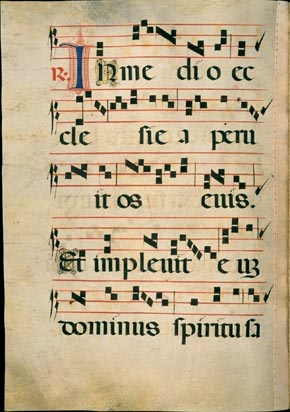 R. In me di o ec
cle sie a peru
it os eius.
Et impleuit e uz
dominus spiritu sa